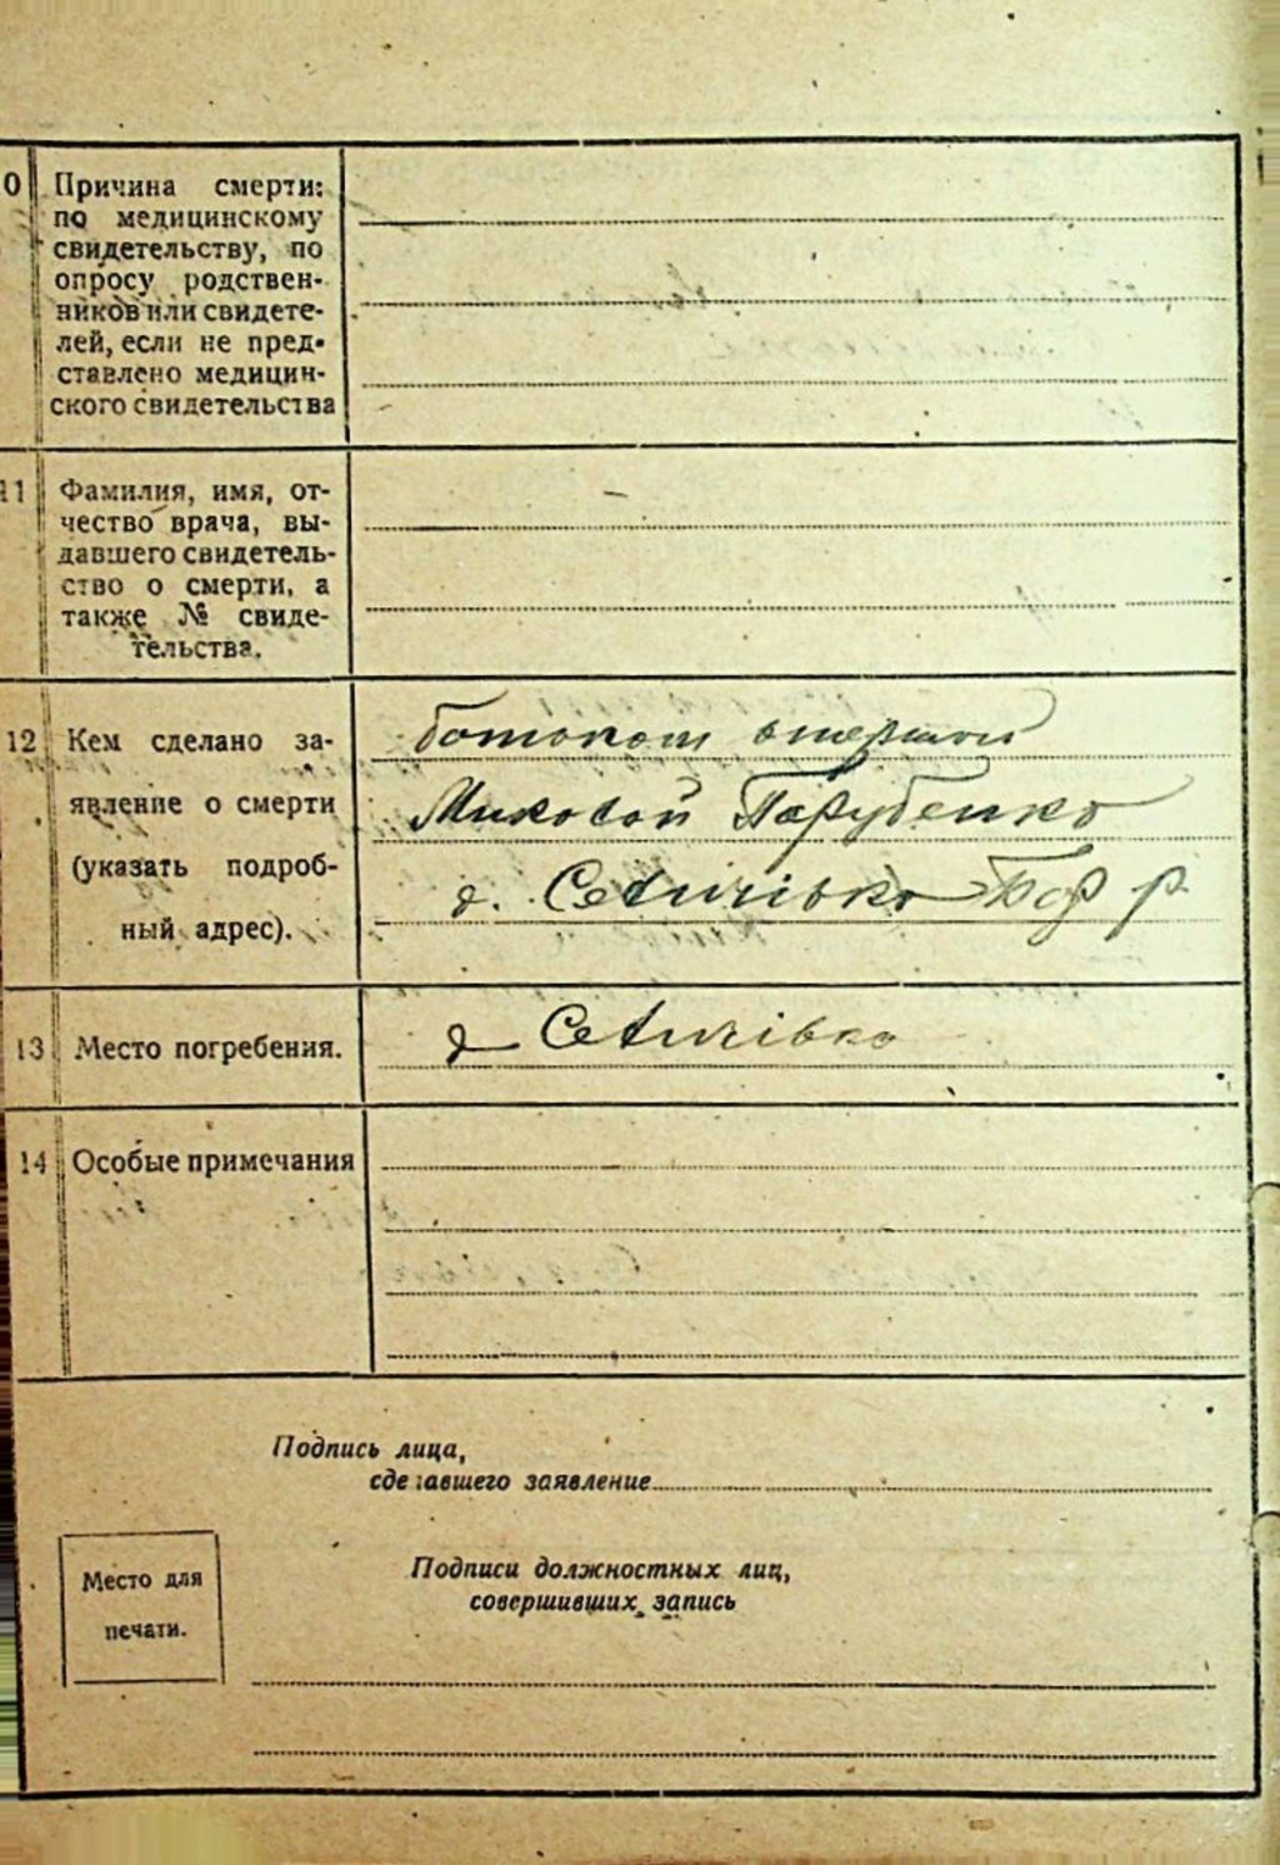 0 Причина смерти:
по медицинскому
свидетельству, по
опросу родствен-
ников или свидете-
лей, если не пред-
ставлено медицин-
ского свидетельства
11 Фамилия, имя, от-
чество врача, вы-
давшего свидетель-
ство о смерти, а
также № свиде-
тельства.
12 Кем сделано за-
явление о смерти
(указать подроб-
ный адрес).
батьком
Парубенко
с.
13 Место погребения.
14 Особые примечания
Подпись лица,
сделавшего заявление
Подписи должностных лиц,
совершивших запись
Место для
печати.